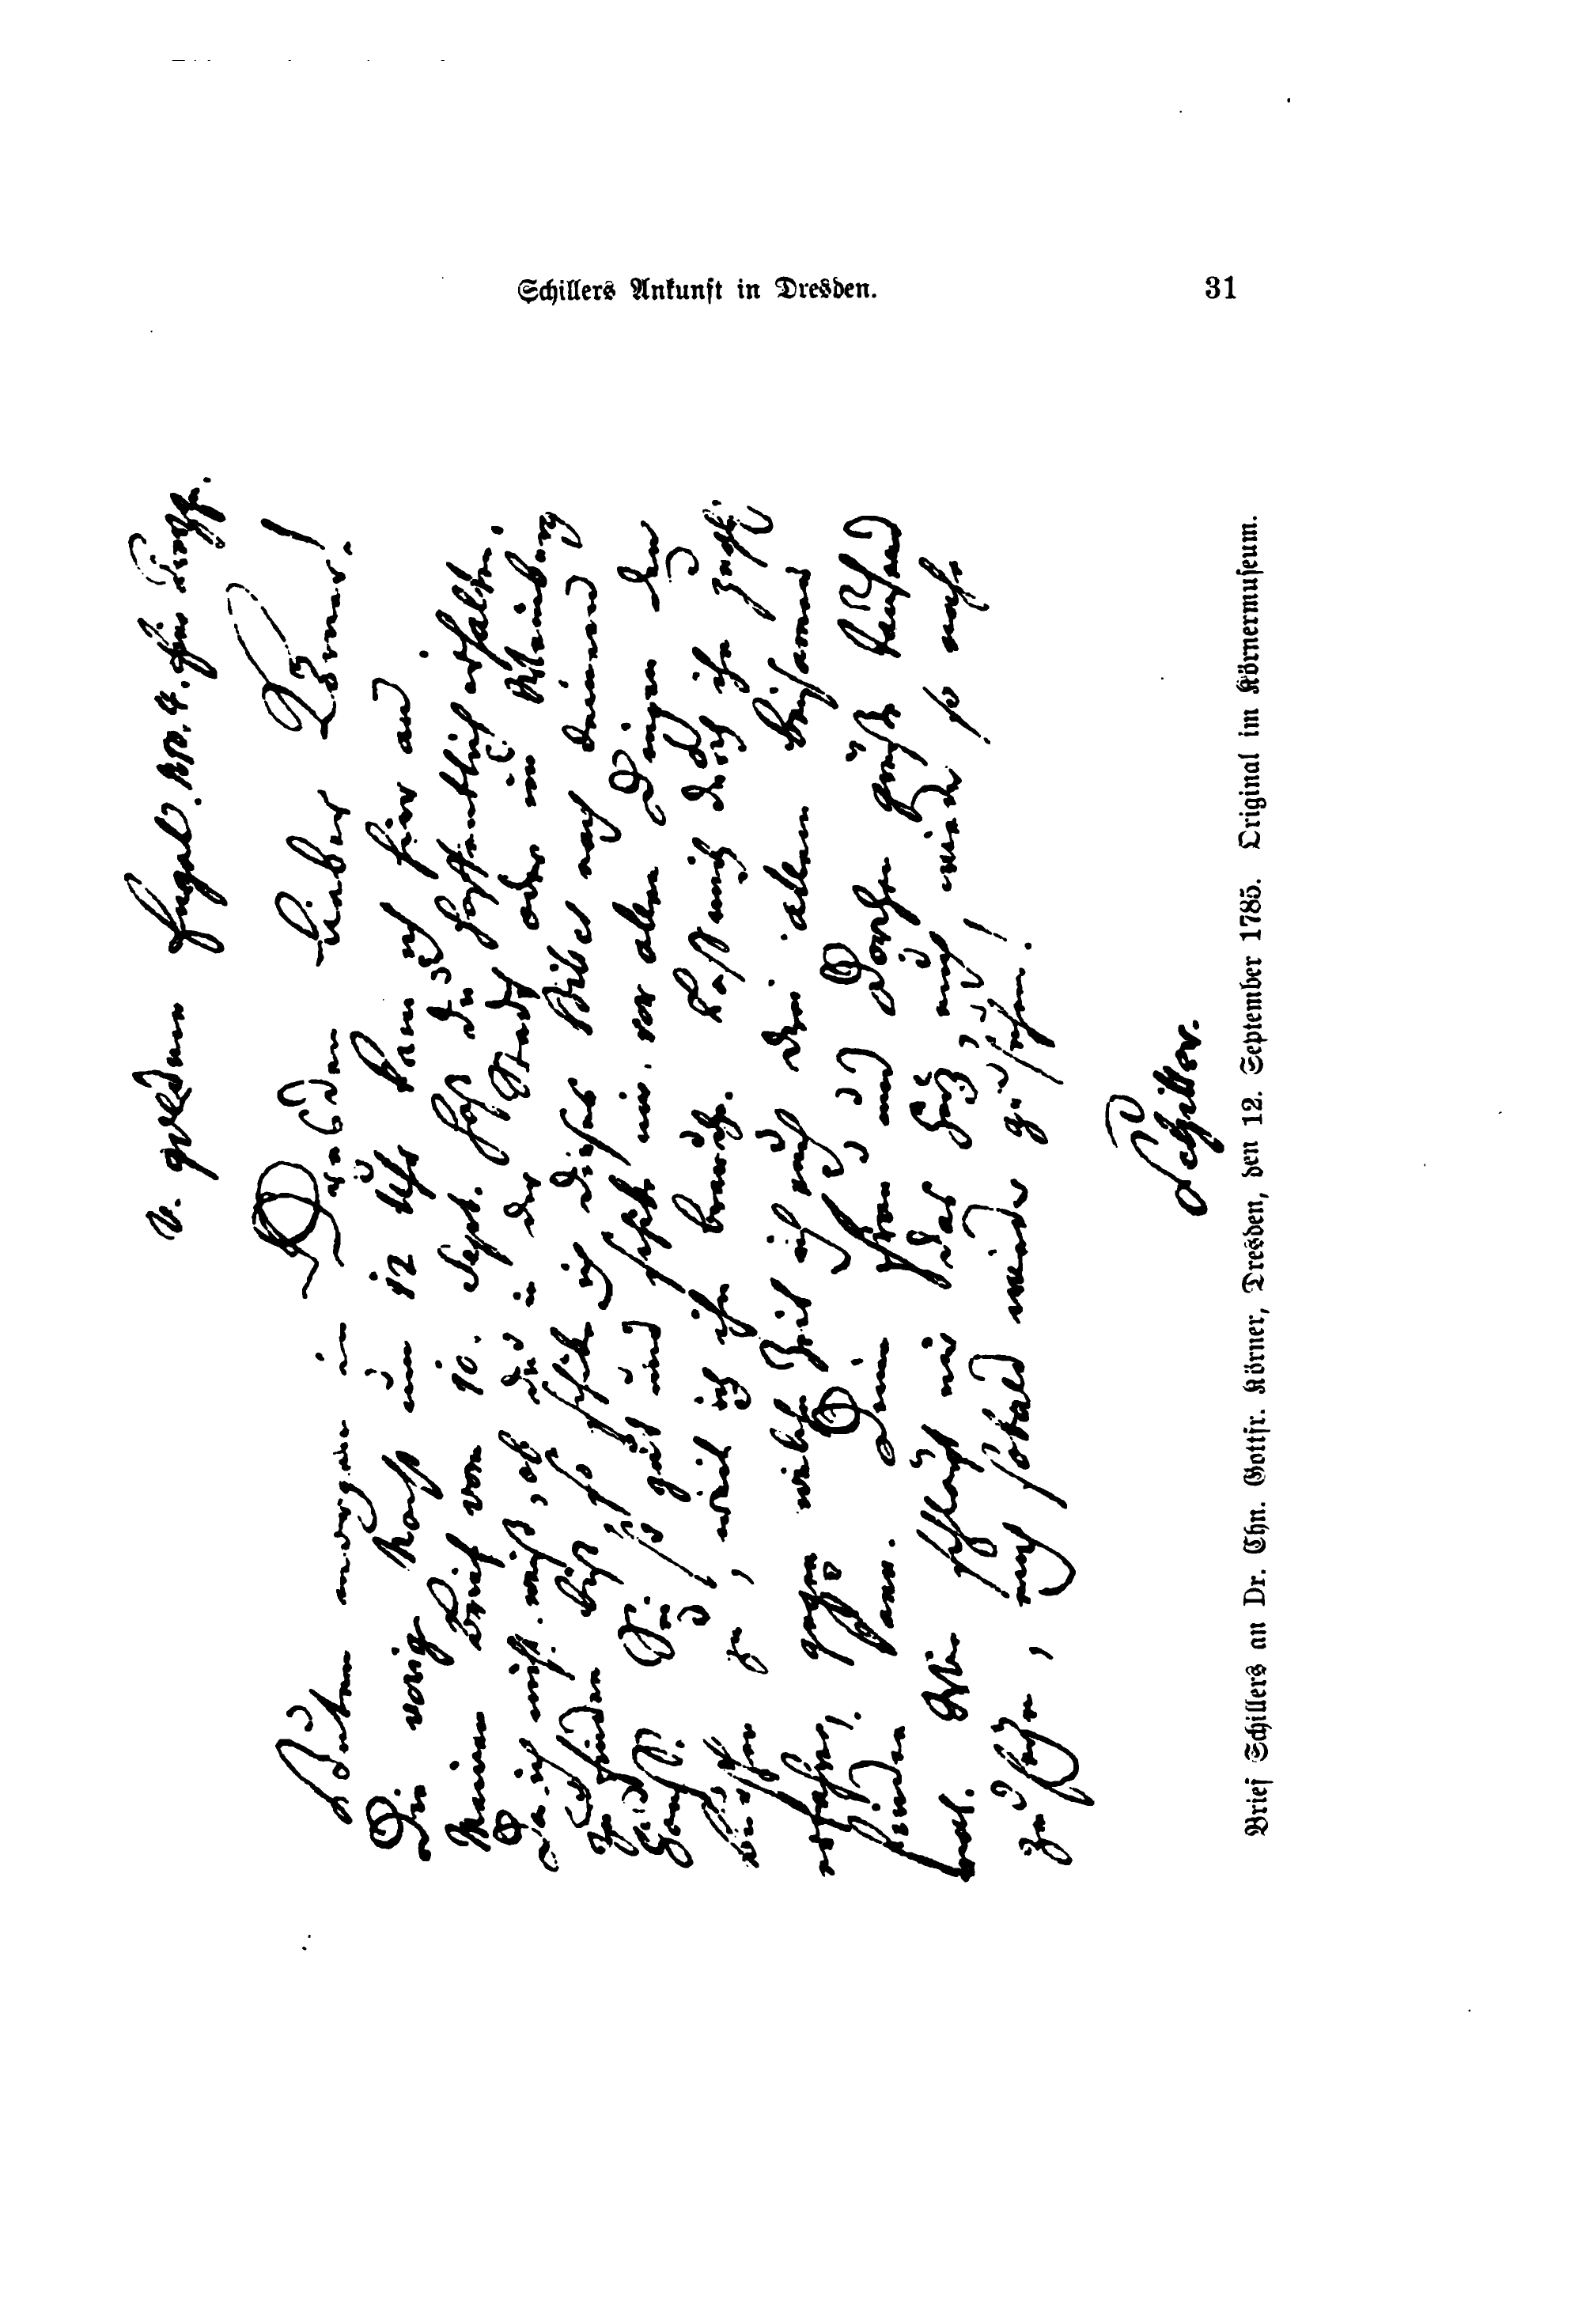 Schillers Ankunft in Dresden.
31
v. goldnen Engel. No. 4. früh
Guten morgen in Dresden lieber Körner!
Die vorig Nacht um 12 Uhr kam ich hier an
Meinen Brief vom 10. Sept. hast du hoffentlich erhalten.
Da ich nicht weiß, ob du in der Stadt oder im Weinberg
zu finden bist so schike ich dieses Billet nach deinem
Hauß. sei so gut und schike mir vor allen Dingen den
zu, weil ich ihn brauche. Laß mich durch ihn
erfahren, gegen welche Zeit ich euch drei allein beisammen
finden kann. Deine Frau und Dorchen grüße tausend
mal. Wie schlägt mir das Herz euch wieder so nahe
zu seyn, euch sobald wieder zu sehen!
Schiller.
Brief Schillers an Dr. Chn. Gottfr. Körner, Dresden, den 12. September 1785. Original im Körnermuseum.